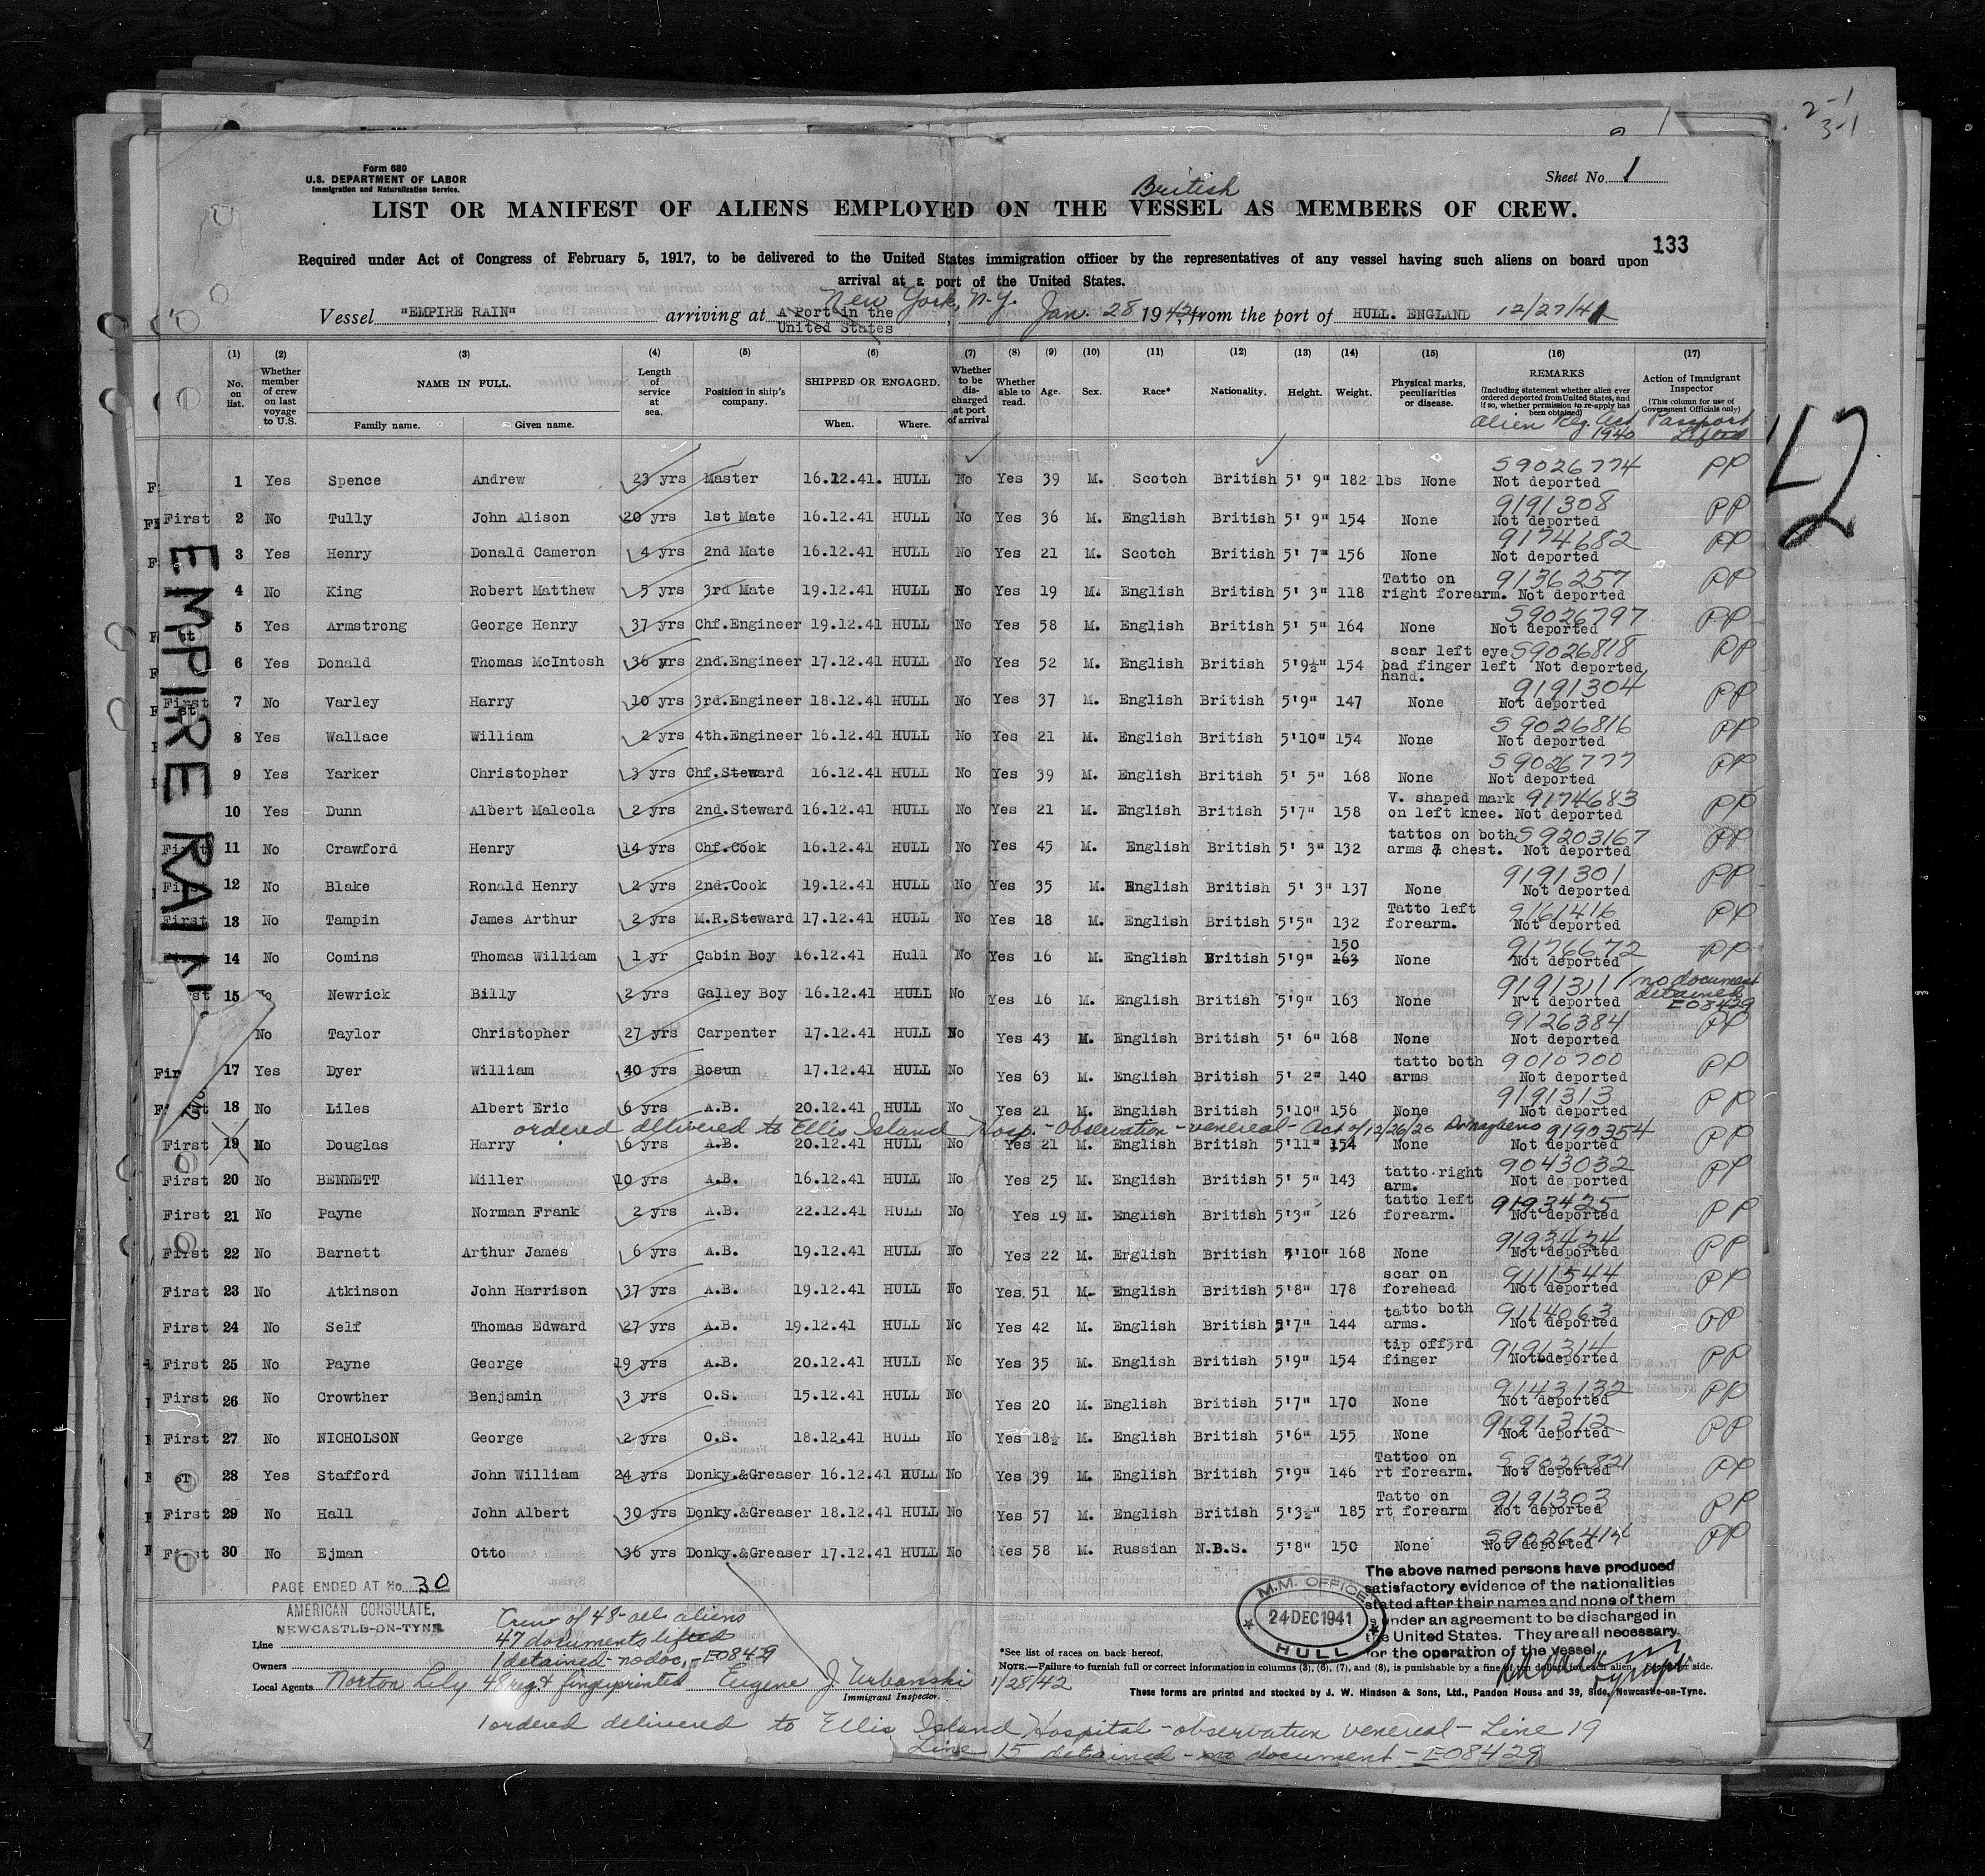 2-1
3-1
Form 680
U.S. DEPARTMENT OF LABOR
Immigration and Naturalization Service.
Sheet No. 1
British
LIST OR MANIFEST OF ALIENS EMPLOYED ON THE VESSEL AS MEMBERS OF CREW.
133
Required under Act of Congress of February 5, 1917, to be delivered to the United States immigration officer by the representatives of any vessel having such aliens on board upon
arrival at a port of the United States.
New York, N.Y.
Vessel "EMPIRE RAIN" arriving at A Port in the United States, Jan. 28 1942, from the port of HULL. ENGLAND 12/27/41
(1) (2) (3) (4) (5) (6) (7) (8) (9) (10) (11) (12) (13) (14) (15) (16) (17)
No. on list. Whether member of crew on last voyage to U.S. NAME IN FULL. Length of service at sea. Position in ship's company. SHIPPED OR ENGAGED. Whether to be discharged at port of arrival Whether able to read. Age. Sex. Race* Nationality. Height. Weight. Physical marks, peculiarities or disease. REMARKS (Including statement whether alien ever ordered deported from United States, and if so, whether permission to re-apply has been obtained) Action of Immigrant Inspector (This column for use of Government Officials only)
Family name. Given name. When. Where. Alien Reg. Act 1940 Passport Lifted
42
EMPIRE RAIN
1 Yes Spence Andrew 23 yrs Master 16.12.41. HULL No Yes 39 M. Scotch British 5' 9" 182 lbs None S9026774 Not deported PP
First 2 No Tully John Alison 20 yrs 1st Mate 16.12.41 HULL No Yes 36 M. English British 5' 9" 154 None 9191308 Not deported PP
3 Yes Henry Donald Cameron 4 yrs 2nd Mate 16.12.41 HULL No Yes 21 M. Scotch British 5' 7" 156 None 9174682 Not deported PP
4 No King Robert Matthew 5 yrs 3rd Mate 19.12.41 HULL No Yes 19 M. English British 5' 3" 118 Tatto on right forearm. 9136257 Not deported PP
5 Yes Armstrong George Henry 37 yrs Chf.Engineer 19.12.41 HULL No Yes 58 M. English British 5' 5" 164 None S9026797 Not deported PP
6 Yes Donald Thomas McIntosh 36 yrs 2nd.Engineer 17.12.41 HULL No Yes 52 M. English British 5'9½" 154 scar left eye bad finger left hand. S9026818 Not deported PP
First 7 No Varley Harry 10 yrs 3rd.Engineer 18.12.41 HULL No Yes 37 M. English British 5'9" 147 None 9191304 Not deported PP
8 Yes Wallace William 2 yrs 4th.Engineer 16.12.41 HULL No Yes 21 M. English British 5'10" 154 None S9026816 Not deported PP
9 Yes Yarker Christopher 3 yrs Chf.Steward 16.12.41 HULL No Yes 39 M. English British 5' 5" 168 None S9026777 Not deported PP
10 Yes Dunn Albert Malcola 2 yrs 2nd.Steward 16.12.41 HULL No Yes 21 M. English British 5'7" 158 V. shaped mark on left knee. 9174683 Not deported PP
First 11 No Crawford Henry 14 yrs Chf.Cook 16.12.41 HULL No Yes 45 M. English British 5' 3" 132 tattos on both arms & chest. S9203167 Not deported PP
First 12 No Blake Ronald Henry 2 yrs 2nd.Cook 19.12.41 HULL No Yes 35 M. English British 5' 3" 137 None 9191301 Not deported PP
First 13 No Tampin James Arthur 2 yrs M.R.Steward 17.12.41 HULL No Yes 18 M. English British 5'5" 132 Tatto left forearm. 9161416 Not deported PP
14 No Comins Thomas William 1 yr Cabin Boy 16.12.41 Hull No Yes 16 M. English British 5'9" 150 163 None 9176672 Not deported PP
15 Newrick Billy 2 yrs Galley Boy 16.12.41 HULL No Yes 16 M. English British 5'9" 163 None 9191311 Not deported no document detained E03429
No Taylor Christopher 27 yrs Carpenter 17.12.41 HULL No Yes 43 M. English British 5' 6" 168 None 9126384 Not deported PP
17 Yes Dyer William 40 yrs Bosun 17.12.41 HULL No Yes 63 M. English British 5' 2" 140 tatto both arms 9010700 Not deported PP
18 No Liles Albert Eric 6 yrs A.B. 20.12.41 HULL No Yes 21 M. English British 5'10" 156 None 9191313 Not deported PP
ordered delivered to Ellis Island Hosp. - Observation - venereal - Act of 12/26/20
First 19 No Douglas Harry 6 yrs A.B. 20.12.41 HULL No Yes 21 M. English British 5'11" 154 None 9190354 Not deported PP
First 20 No BENNETT Miller 10 yrs A.B. 16.12.41 HULL No Yes 25 M. English British 5' 5" 143 tatto right arm. 9043032 Not de ported PP
First 21 No Payne Norman Frank 2 yrs A.B. 22.12.41 HULL No Yes 19 M. English British 5'3" 126 tatto left forearm. 9193425 Not deported PP
First 22 No Barnett Arthur James 6 yrs A.B. 19.12.41 HULL No Yes 22 M. English British 5'10" 168 None 9193424 Not deported PP
First 23 No Atkinson John Harrison 37 yrs A.B. 19.12.41 HULL No Yes. 51 M. English British 5'8" 178 scar on forehead 9111544 Not deported PP
First 24 No Self Thomas Edward 27 yrs A.B. 19.12.41 HULL No Yes 42 M. English British 5'7" 144 tatto both arms. 9114063 Not deported PP
First 25 No Payne George 19 yrs A.B. 20.12.41 HULL No Yes 35 M. English British 5'9" 154 tip off3rd finger 9191314 Not deported PP
First 26 No Crowther Benjamin 3 yrs O.S. 15.12.41 HULL No Yes 20 M. English British 5'7" 170 None 9143132 Not deported PP
First 27 No NICHOLSON George 2 yrs O.S. 18.12.41 HULL No Yes 18½ M. English British 5'6" 155 None 9191312 Not deported PP
28 Yes Stafford John William 24 yrs Donky.&Greaser 16.12.41 HULL No Yes 39 M. English British 5'9" 146 Tattoo on rt forearm. S9026821 Not deported PP
First 29 No Hall John Albert 30 yrs Donky.&Greaser 18.12.41 HULL No Yes 57 M. English British 5'3½" 185 Tatto on rt forearm 9191303 Not deported PP
First 30 No Ejman Otto 36 yrs Donky.&Greaser 17.12.41 HULL No Yes 58 M. Russian N.B.S. 5'8" 150 None Not deported PP
PAGE ENDED AT No. 30
AMERICAN CONSULATE,
NEWCASTLE-ON-TYNE
Crew of 48 - all aliens
47 documents lifted
Line
1 detained - no doc. - E08429
Owners
Local Agents Norton Lily 48 reg. & fingerprinted Eugene J. Urbanski 1/28/42
Immigrant Inspector.
M.M. OFFICE
24 DEC 1941
HULL
The above named persons have produced
satisfactory evidence of the nationalities
stated after their names and none of them
is under an agreement to be discharged in
the United States. They are all necessary
for the operation of the vessel.
*See list of races on back hereof.
NOTE.—Failure to furnish full or correct information in columns (3), (6), (7), and (8), is punishable by a fine of ten dollars for each alien. See other side.
These forms are printed and stocked by J. W. Hindson & Sons, Ltd., Pandon House and 39, Side, Newcastle-on-Tyne.
1 ordered delivered to Ellis Island Hospital - observation venereal - Line 19
Line 15 detained - no document - E08429